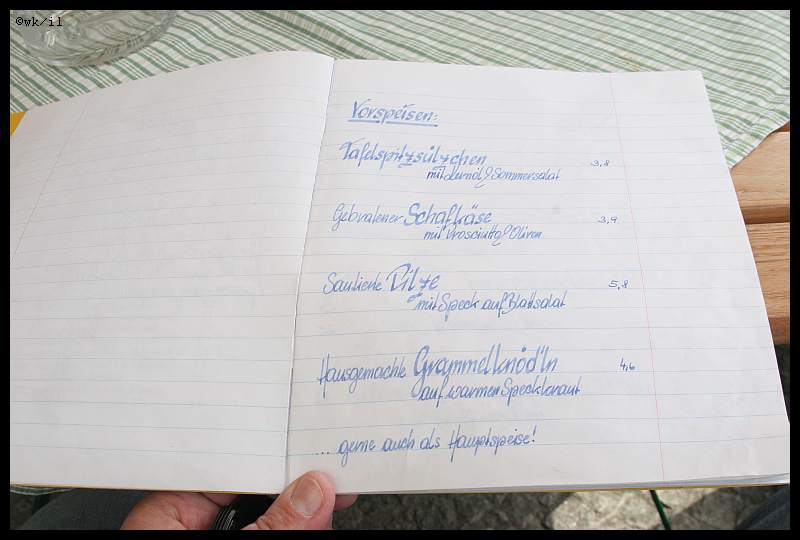 ©wk/il
Vorspeisen:
Tafelspitzsülzchen
mit Kernöl & Sommersalat
3,8
Gebratener Schafkäse
mit Prosciutto & Oliven
3,9
Sautierte Pilze
mit Speck auf Blattsalat
5,8
Hausgemachte Grammelknöd'ln
auf warmen Speckkraut
4,6
... gerne auch als Hauptspeise!